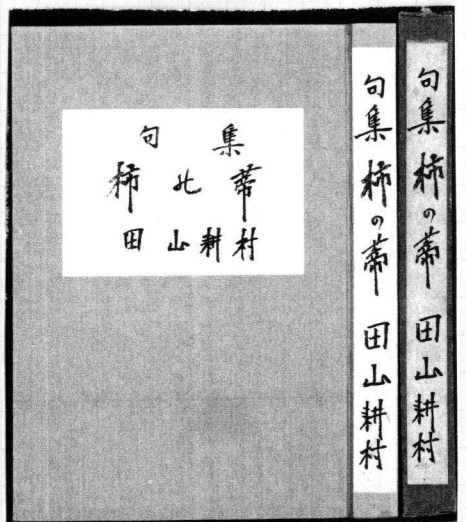 句集
柿の蔕
田山耕村
句集 柿の蔕 田山耕村
句集 柿の蔕 田山耕村